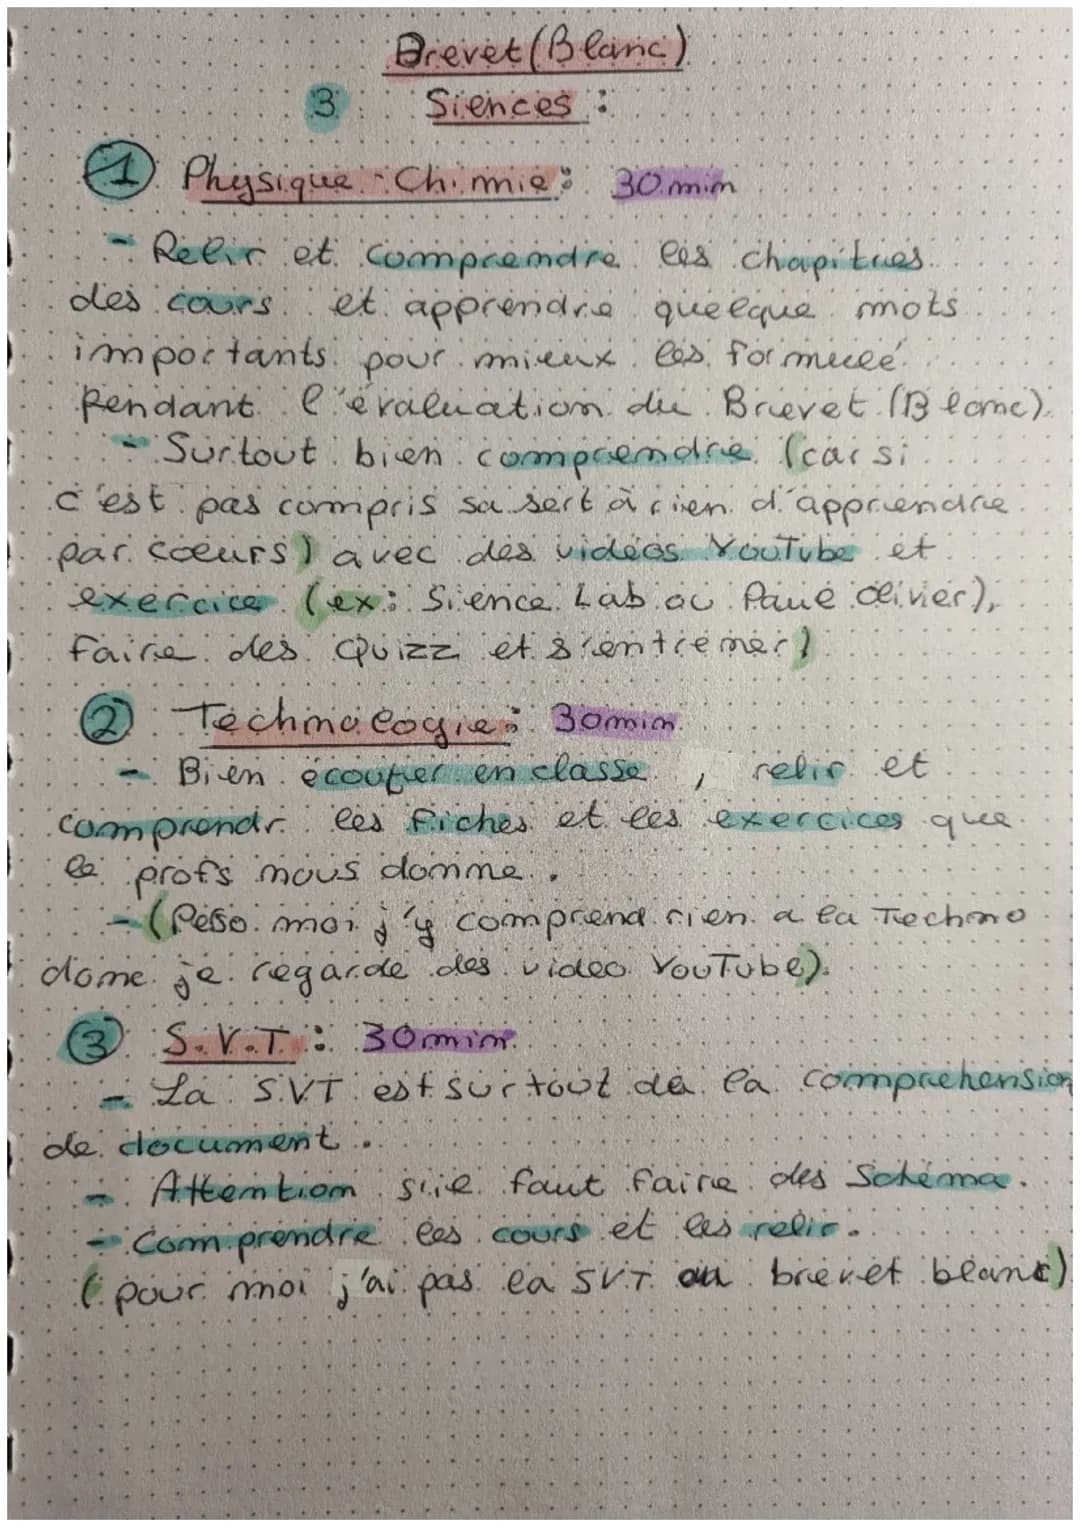 Brevet (Blanc)
3 Siences :
1 Physique - Chimie : 30 min
- Relir et comprendre les chapitres
des cours et apprendre quelque mots
importants pour mieux les formulé
pendant l'évaluation du Brevet (Blanc).
- Surtout bien comprendre (car si
c'est pas compris sa sert à rien d'apprendre
par cœurs) avec des vidéos YouTube et
exercice (ex: Sience Lab ou Paul Olivier),
faire des Quizz et s'entrener)
2 Technologie : 30min
- Bien écouter en classe , relir et
comprendr les fiches et les exercices que
le profs nous donne.
- (Peso moi j'y comprend rien a la Techno
donc je regarde des video YouTube).
3 S.V.T. : 30min
- La S.V.T est surtout de la comprehension
de document.
- Attention s'il faut faire des Schéma.
- Comprendre les cours et les relir.
(pour moi j'ai pas la SVT au brevet blanc)